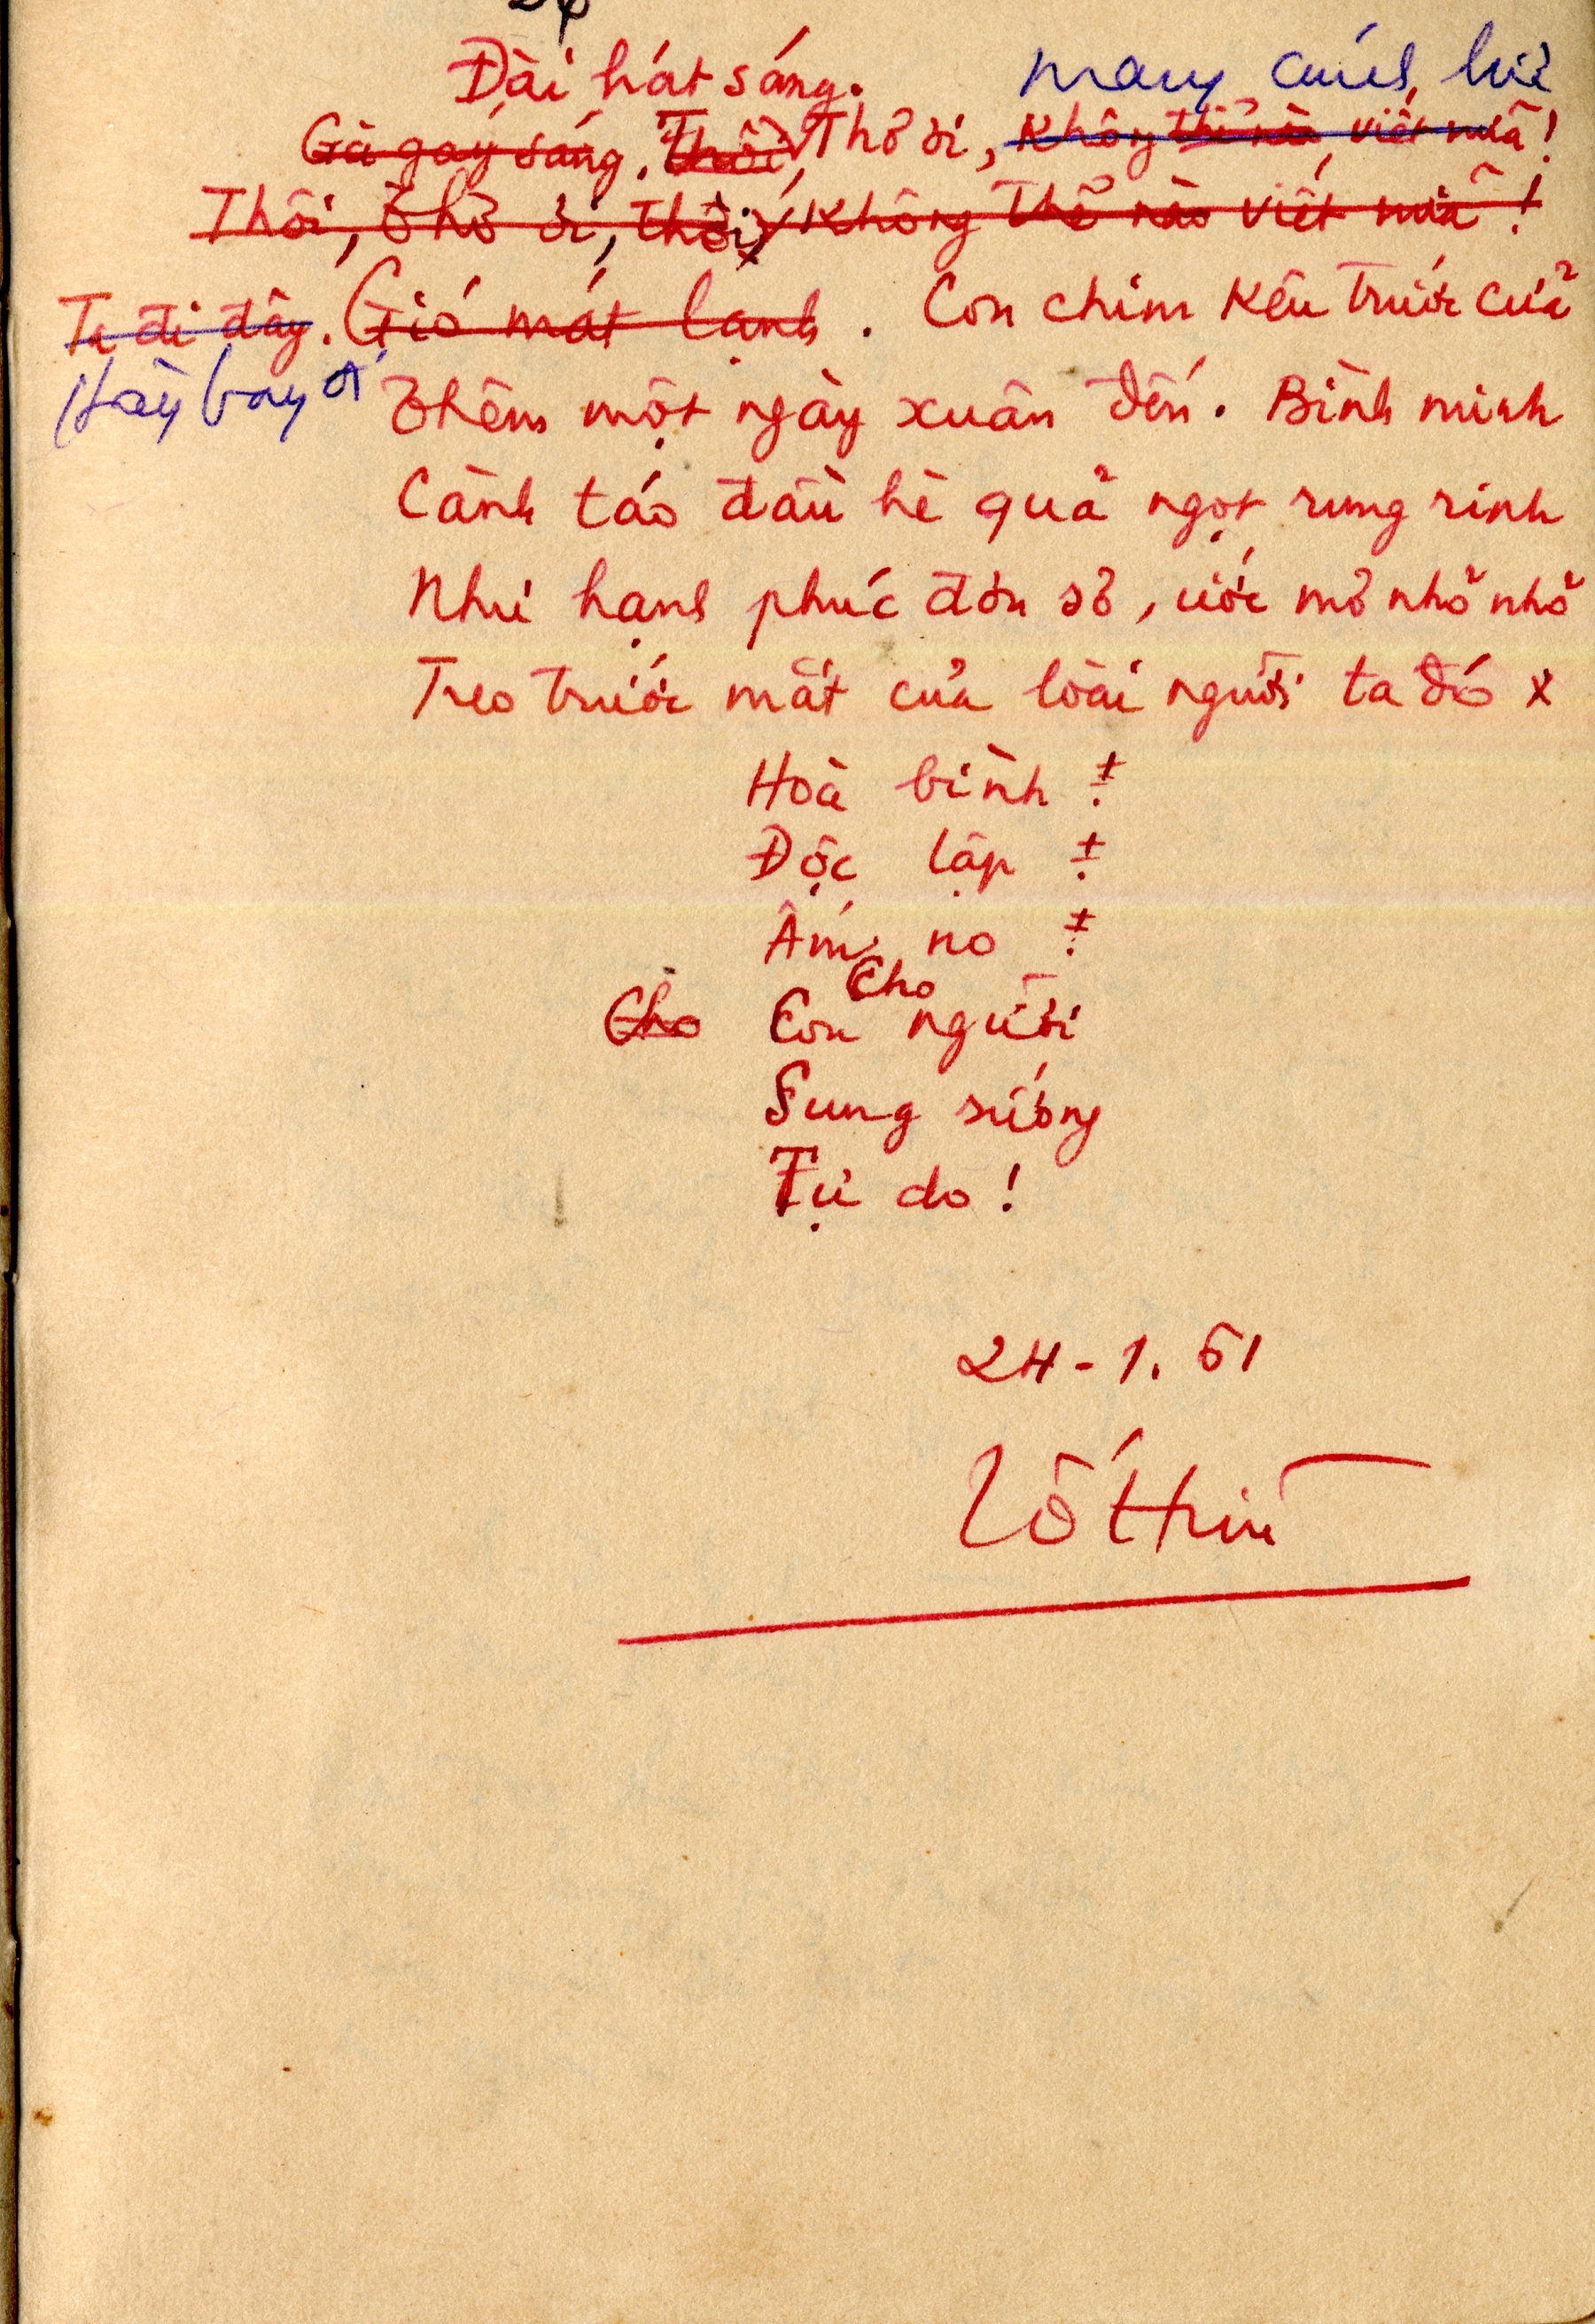 Đài hát sáng. mang cánh lửa
Gà gáy sáng. Thôi, Thơ ơi, không thể nào viết nữa!
Thôi, Thơ ơi, thôi, không thể nào viết nữa!
Ta đi đây. Gió mát lạnh. Con chim kêu trước cửa
Hãy bay đi Thêm một ngày xuân đến. Bình minh
Cành táo đầu hè quả ngọt rung rinh
Như hạnh phúc đơn sơ, ước mơ nho nhỏ
Treo trước mắt của loài người ta đó x
Hoà bình
Độc lập
Ấm no
Cho
Cho Con người
Sung sướng
Tự do!
24-1.61
Tố Hữu